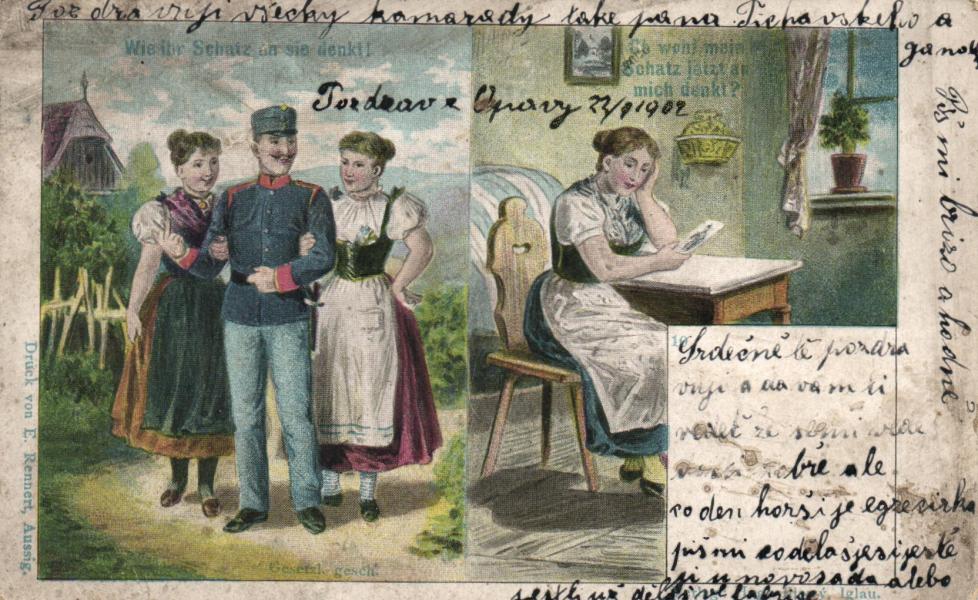 Pozdravuji všecky kamarady take pana Tichavskeho a
ganok
Wie ihr Schatz an sie denkt!
Ob wohl mein
Schatz jetzt an
mich denkt?
Pozdrav z Opavy 22/9 1902
Piš mi brizo a hodně
Srdečně tě pozdra
vuji a da vam ti
vědět že semi vede
dobře ale
co den horši je egzecirka
piš mi co dělaš jesi ještě
ji u novosada alebo
jestli už dělaš ve fabrice
Druck von E. Rennert, Aussig.
Gesetzl. gesch.
Iglau.